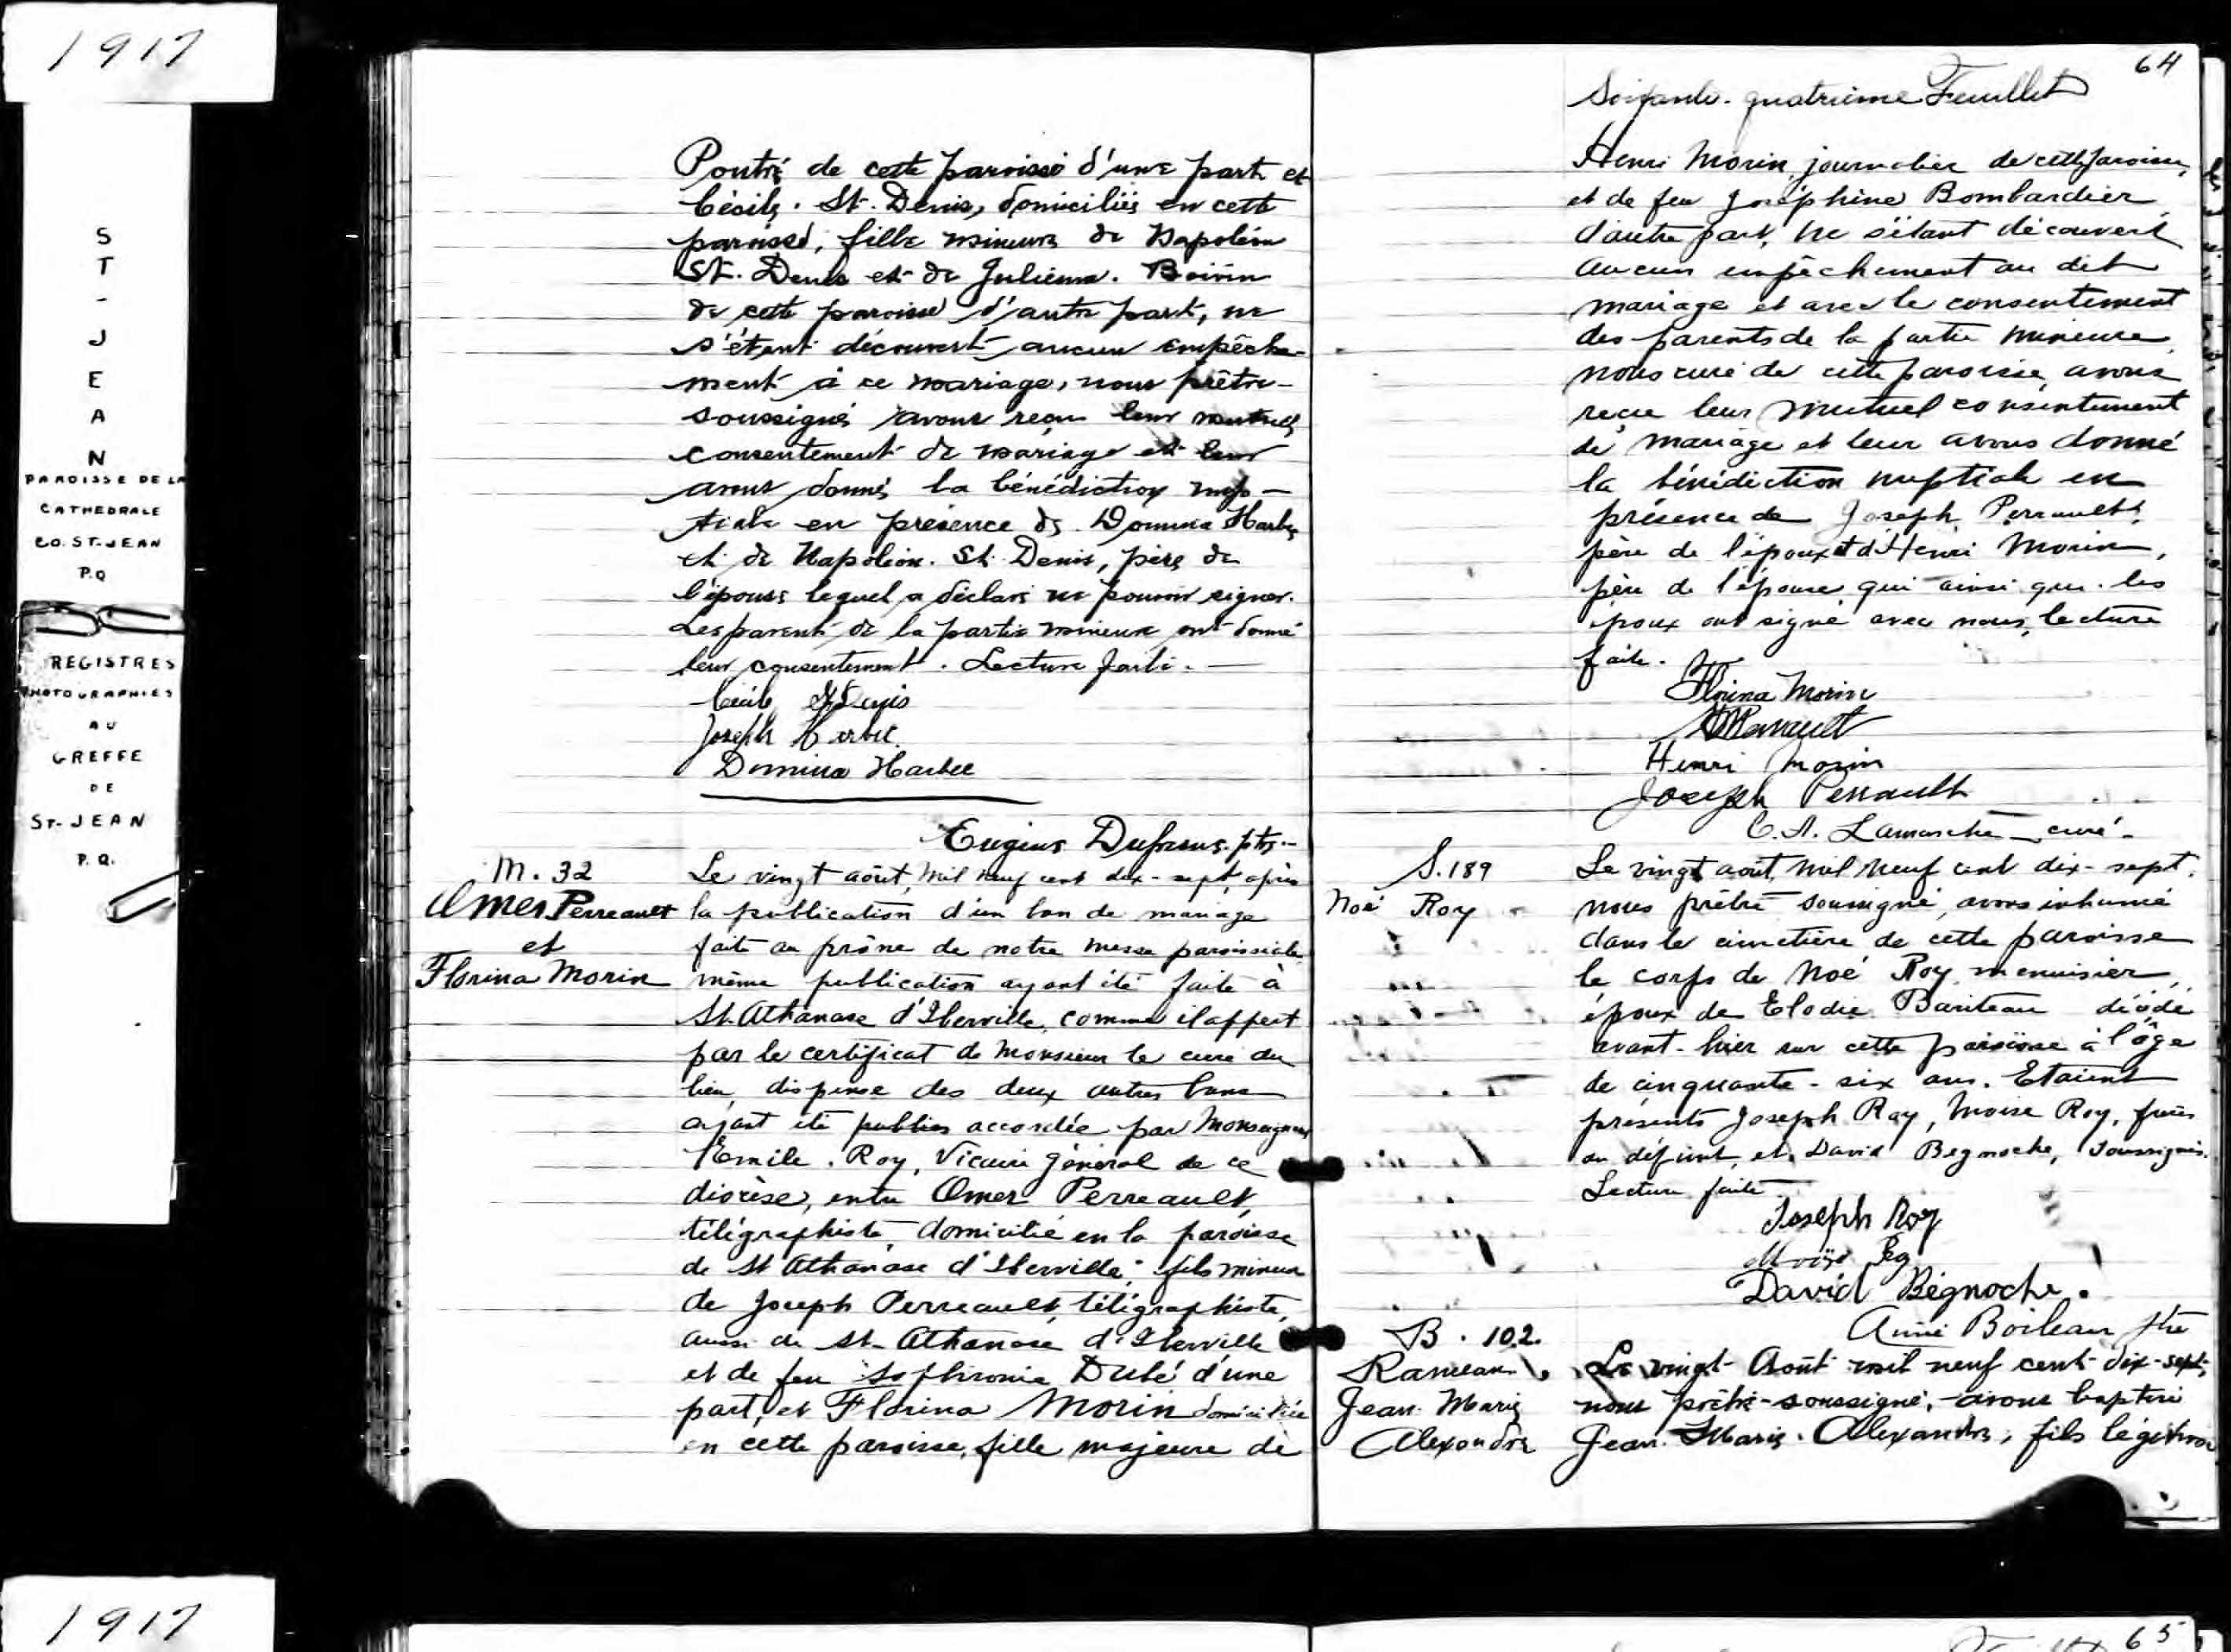 1917
S
T
-
J
E
A
N
PAROISSE DE LA
CATHEDRALE
CO. ST-JEAN
P.Q
REGISTRES
PHOTOGRAPHIES
AU
GREFFE
DE
ST-JEAN
P.Q.
1917
Poutré de cette paroisse d'une part et
Cécile St. Denis, domiciliée en cette
paroisse, fille mineure de Napoléon
St. Denis et de Julienne Boivin
de cette paroisse d'autre part, ne
s'étant découvert aucun empêche-
ment à ce mariage, nous prêtre-
soussigné avons reçu leur mutuel
consentement de mariage et leur
avons donné la bénédiction nup-
tiale en présence de Domina Harbec
et de Napoléon St. Denis, père de
l'épouse lequel a déclaré ne pouvoir signer.
Les parents de la partie mineure ont donné
leur consentement. Lecture faite.
Cécile St Denis
Joseph Harbec
Domina Harbec
Dufresne ptre
M. 32
Omer Perreault
et
Florina Morin
Le vingt août, mil neuf cent dix-sept, après
la publication d'un ban de mariage
fait au prône de notre messe paroissiale
même publication ayant été faite à
St. Athanase d'Iberville, comme il appert
par le certificat de Monsieur le curé du
lieu, dispense des deux autres bans
ayant été publiés accordée par Monseigneur
Emile. Roy, Vicaire général de ce
diocèse, entre Omer Perreault,
télégraphiste, domicilié en la paroisse
de St Athanase d'Iberville; fils mineur
de Joseph Perreault, télégraphiste,
aussi de St-Athanase d'Iberville
et de feu Sophronie Dubé d'une
part, et Florina Morin domiciliée
en cette paroisse, fille majeure de
64
Soixante-quatrième Feuillet
Henri Morin, journalier de cette paroisse,
et de feu Joséphine Bombardier
d'autre part, ne s'étant découvert
aucun empêchement au dit
mariage et avec le consentement
des parents de la partie mineure,
nous curé de cette paroisse, avons
reçu leur mutuel consentement
de mariage et leur avons donné
la bénédiction nuptiale en
présence de Joseph Perreault,
père de l'époux et d'Henri Morin,
père de l'épouse qui ainsi que les
époux ont signé avec nous, lecture
faite.
Florina Morin
Perrault
Henri Morin
Joseph Perrault
C. A. Lamarche curé
S. 189
Noé Roy
Le vingt août, mil neuf cent dix-sept,
nous prêtre soussigné, avons inhumé
dans le cimetière de cette paroisse
le corps de Noé Roy, menuisier,
époux de Elodie Bariteau décédé
avant-hier sur cette paroisse à l'âge
de cinquante-six ans. Etaient
présents Joseph Roy, Moise Roy, frères
du défunt, et David Begnoche, soussignés.
Lecture faite
Joseph Roy
Moïse Roy
David Bégnoche.
Boileau ptre
B. 102.
Rameau
Jean Marie
Alexandre
Le vingt Août mil neuf cent dix-sept,
nous prêtre-soussigné, avons baptisé
Jean. Marie. Alexandre, fils légitime
65